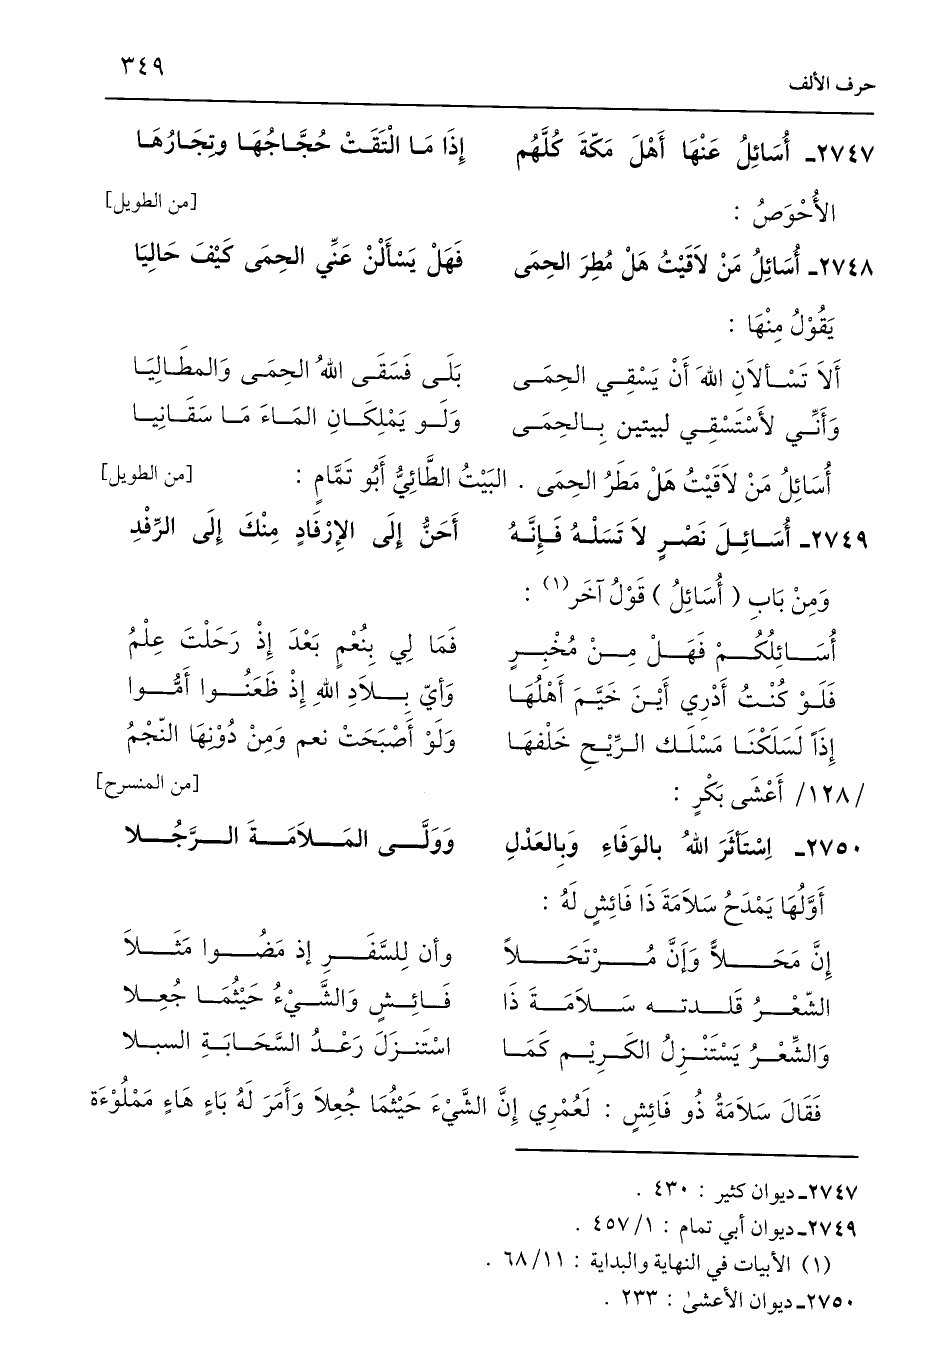 حرف الألف ٣٤٩
٢٧٤٧ـ أُسَائِلُ عَنْهَا أَهْلَ مَكّةَ كُلَّهُم إِذَا مَا الْتَقَتْ حُجَّاجُهَا وتِجَارُهَا
الأُحْوَصُ : [من الطويل]
٢٧٤٨ـ أُسَائِلُ مَنْ لاَقَيْتُ هَلْ مُطِرَ الحِمَى فَهَلْ يَسْأَلَنْ عَنِّي الحِمَى كَيْفَ حَالِيَا
يَقُوْلُ مِنْهَا :
أَلاَ تَسْأَلاَنِ اللهَ أَنْ يَسْقِي الحِمَى بَلَى فَسَقَى اللهُ الحِمَى وَالمطَالِيَا
وَأَنِّي لأَسْتَسْقِي لبيتين بِالحِمَى وَلَو يَمْلِكَانِ المَاءَ مَا سَقَانِيا
أُسَائِلُ مَنْ لاَقَيْتُ هَلْ مَطَرُ الحِمَى . البَيْتُ الطَّائِيُّ أَبُو تَمَّامٍ : [من الطويل]
٢٧٤٩ـ أُسَائِلَ نَصْرٍ لاَ تَسَلْهُ فَإِنَّهُ أَحَنُّ إِلَى الإِرْفَادِ مِنْكَ إِلَى الرِّفْدِ
وَمِنْ بَابِ ( أُسَائِلُ ) قَوْلُ آخَر(١) :
أُسَائِلُكُمْ فَهَلْ مِنْ مُخْبِرٍ فَمَا لِي بِنُعْمٍ بَعْدَ إِذْ رَحَلْتَ عِلْمُ
فَلَوْ كُنْتُ أَدْرِي أَيْنَ خَيَّمَ أَهْلُهَا وَأيّ بِلاَدِ اللهِ إِذْ ظَعَنُوا أَمُّوا
إِذَاً لَسَلَكْنَا مَسْلَك الرِّيْحِ خَلْفهَا وَلَوْ أَصْبَحَتْ نعم وَمِنْ دُوْنِهَا النَّجْمُ
/١٢٨/ أَعْشَى بَكْرٍ : [من المنسرح]
٢٧٥٠ـ اِسْتَأْثَرَ اللهُ بالوَفَاءِ وَبِالعَدْلِ وَوَلَّى المَلاَمَةَ الرَّجُلا
أَوَّلُهَا يَمْدَحُ سَلاَمَةَ ذَا فَائِشٍ لَهُ :
إِنَّ مَحَلاًّ وَإَنَّ مُرْتَحَلاً وأن لِلسَّفَرِ إذ مَضُوا مَثَلاَ
الشّعْرُ قلدته سَلاَمَةَ ذَا فَائِشٍ وَالشَّيْءُ حَيْثُمَا جُعِلا
وَالشِّعْرُ يَسْتَنْزِلُ الكَرِيْم كَمَا اسْتَنزَلَ رَعْدُ السَّحَابَةِ السبلا
فَقَالَ سَلاَمَةُ ذُو فَائِشٍ : لَعُمْرِي إِنَّ الشَّيْءَ حَيْثُمَا جُعِلاَ وَأَمَرَ لَهُ بَاءٍ هَاءٍ مَمْلُوْءَة
٢٧٤٧ـ ديوان كثير : ٤٣٠ .
٢٧٤٩ـ ديوان أبي تمام : ٤٥٧/١ .
(١) الأبيات في النهاية والبداية : ٦٨/١١ .
٢٧٥٠ـ ديوان الأعشىٰ : ٢٣٣ .